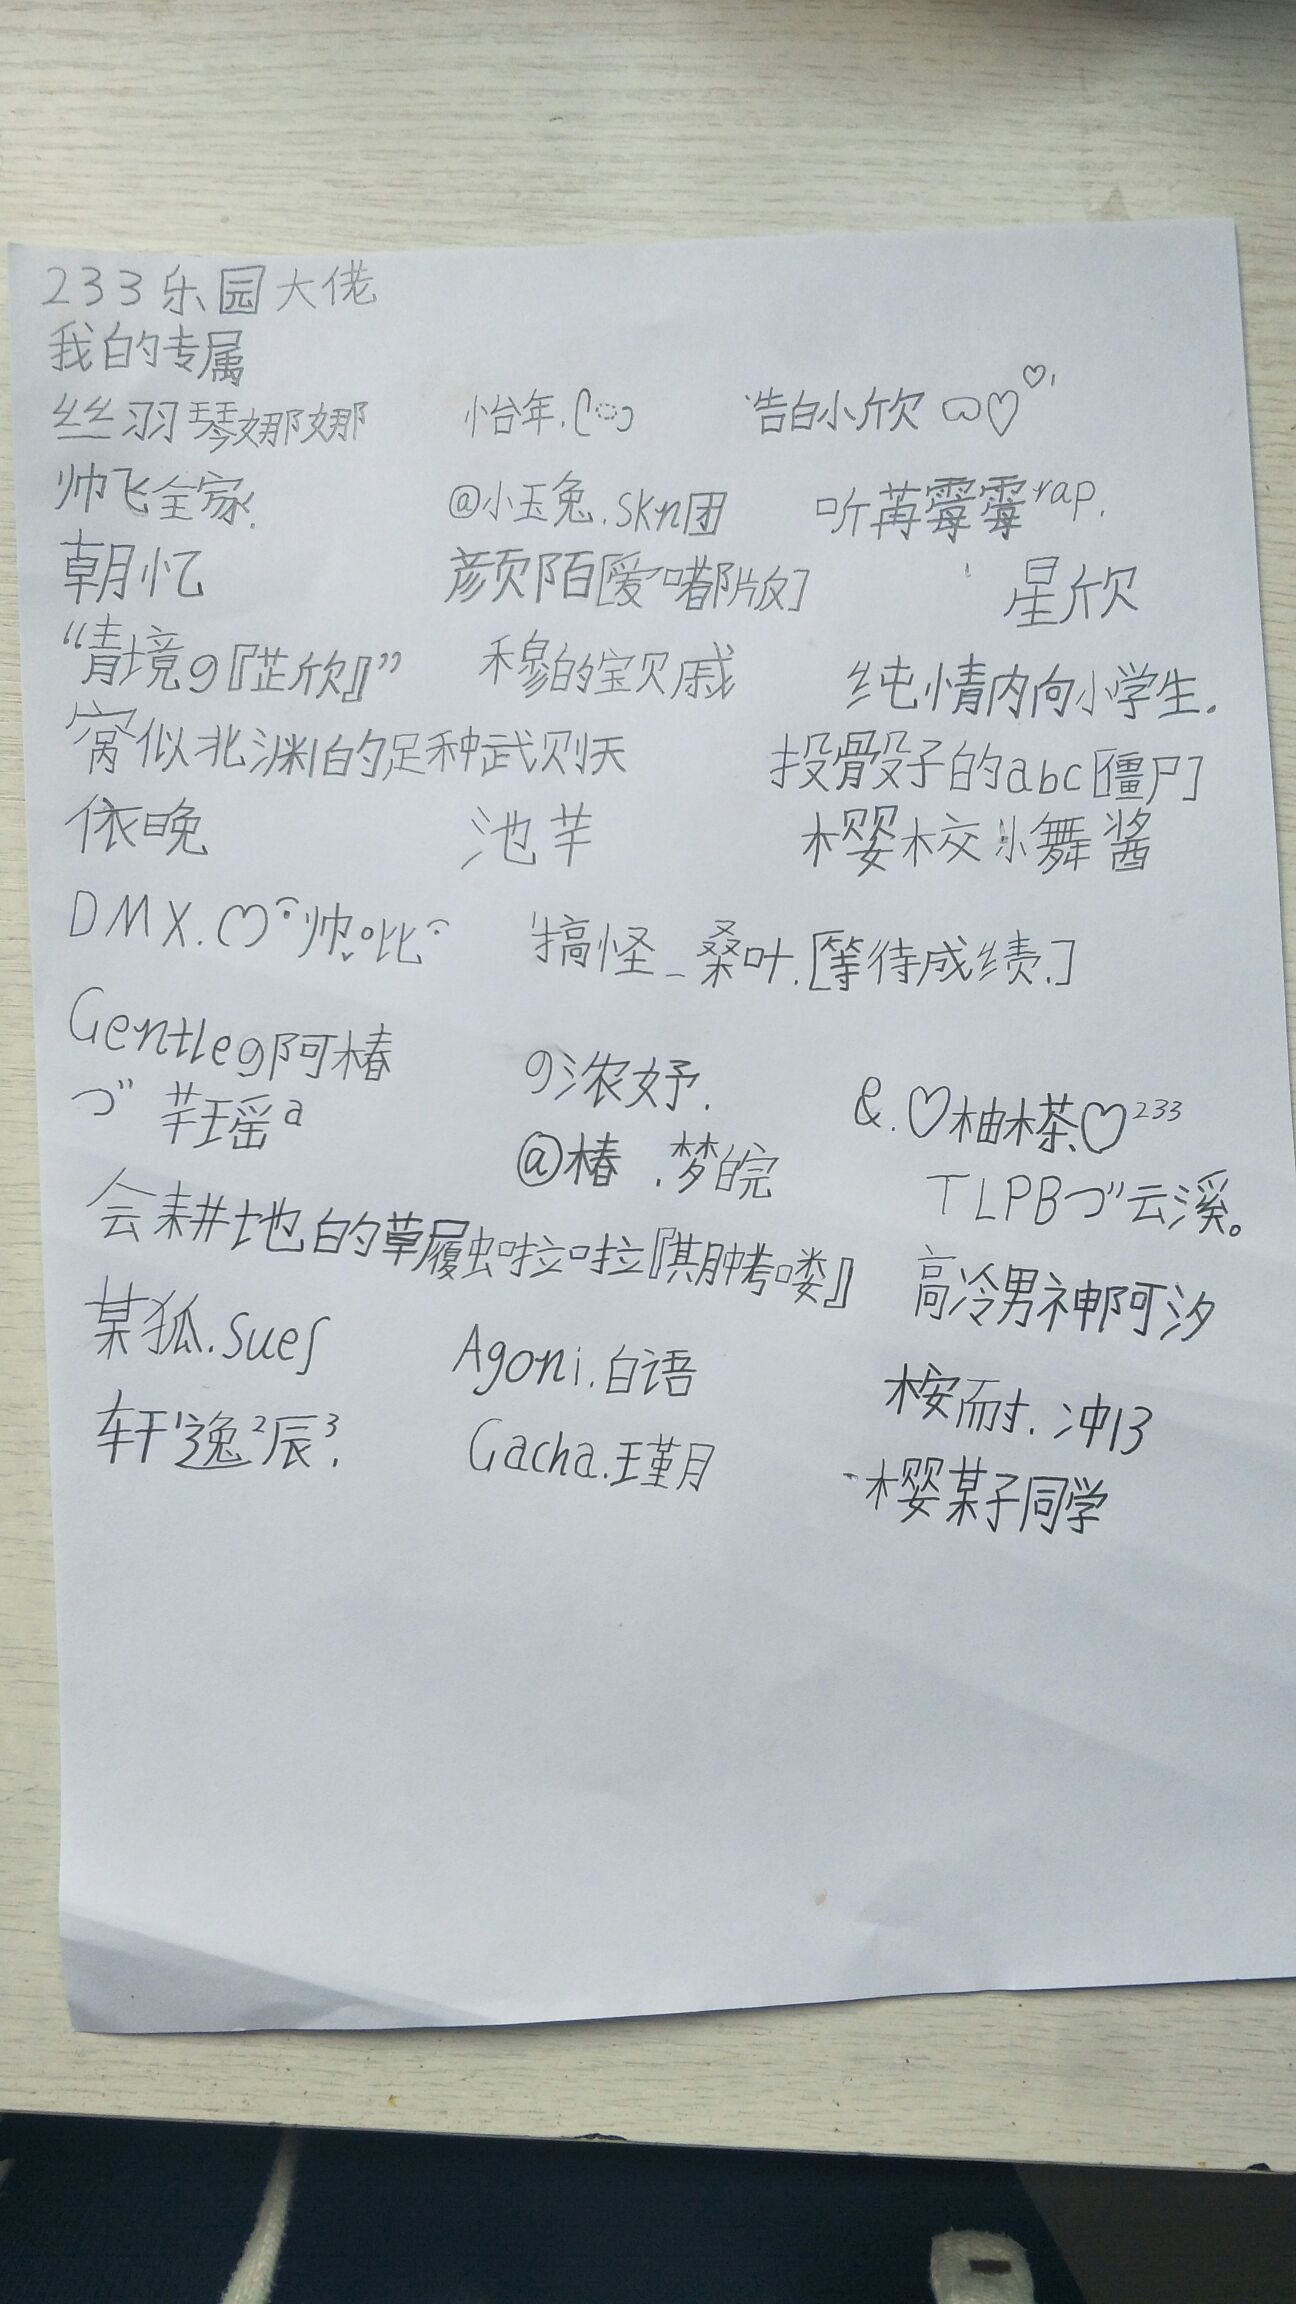 233乐园大佬
我的专属
丝羽琴娜娜 怡年. 告白小欣
帅飞全家. @小玉兔.skn团 听苒霉霉rap.
朝忆 颜陌[爱嘟版] 星欣
“青境g『芷欣』” 穆的宝贝戚 纯情内向小学生.
窝似北渊的足种武则天 投骰子的abc[僵尸]
依晚 池芊 樱校小舞酱
DMX.♡帅吡 搞怪_桑叶.[等待成绩.]
Gentleg阿椿 g浓妤. &.♡柚茶♡233
づ 芊瑶a @椿.梦皖 TLPBづ云溪。
会耕地的草履虫啦啦『其肿喽』 高冷男神阿汐
某狐.Sues Agoni.白语 桉耐.冲13
轩1逸2辰3. Gacha.瑾月 樱某子同学